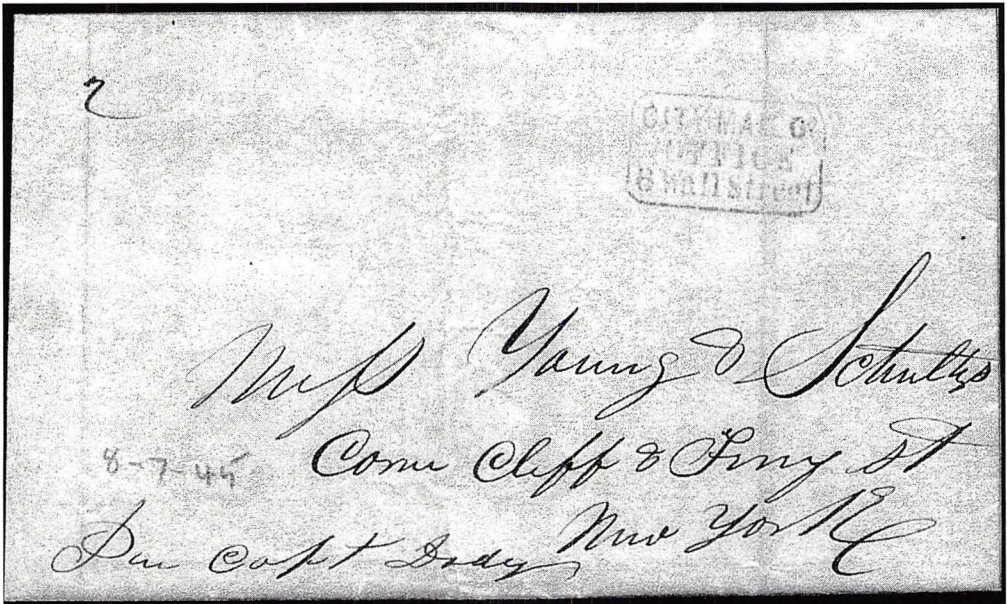 2
CITY MAIL Co
OFFICE
8 Wall Street
Mess Young & Schultz
Corne Cliff & Ferry St
8-7-45
New York
Per Capt Dody